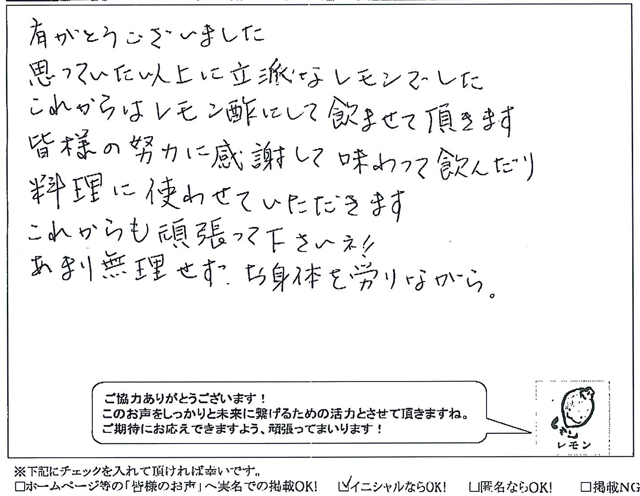 有がとうございました
思っていた以上に立派なレモンでした
これからはレモン酢にして飲ませて頂きます
皆様の努力に感謝して味わって飲んだり
料理に使わせていただきます
これからも頑張って下さいネ!!
あまり無理せず、お身体を労りながら。
ご協力ありがとうございます!
このお声をしっかりと未来に繋げるための活力とさせて頂きますね。
ご期待にお応えできますよう、頑張ってまいります!
レモン
※下記にチェックを入れて頂ければ幸いです。
□ホームページ等の「皆様のお声」へ実名での掲載OK! ☑イニシャルならOK! □匿名ならOK! □掲載NG